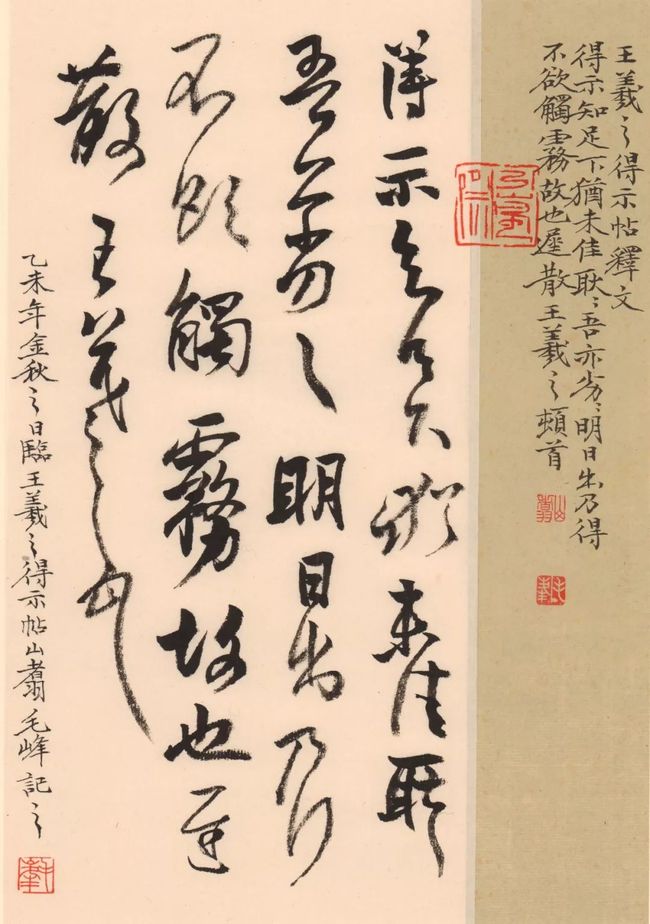 王羲之得示帖釋文
得示知足下猶未佳耿〻吾亦劣〻明日出乃得
不欲觸霧故也遲散王羲之頓首
得示知足下猶未佳耿〻
吾亦劣〻明日出乃行
不欲觸霧故也遲
散王羲之頓首
乙未年金秋之日臨王羲之得示帖山翥毛峰記之